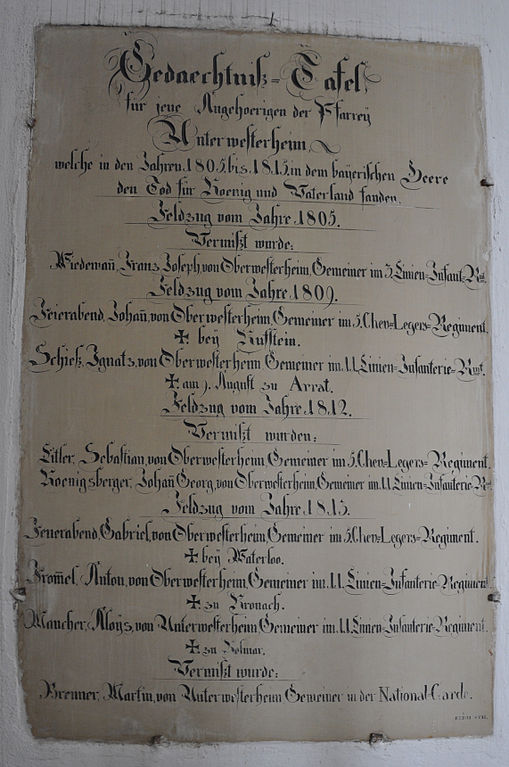 Gedaechtniß-Tafel
für jene Angehoerigen der Pfarreÿ
Unterwesterheim,
welche in den Jahren 1805 bis 1815 in dem bayerischen Heere
den Tod für Koenig und Vaterland fanden.
Feldzug vom Jahre 1805.
Vermißt wurde:
Wiedemañ, Franz Joseph, von Oberwesterheim, Gemeiner im 3. Linien-Infant-Rgt.
Feldzug vom Jahre 1809.
Feierabend, Johañ, von Oberwesterheim, Gemeiner im 5. Chev-Legers-Regiment,
✝ bey Kufstein.
Schieß, Ignatz, von Oberwesterheim Gemeiner im 11. Linien-Infanterie-Rgmt.
✝ am 9. August zu Arrat.
Feldzug vom Jahre 1812.
Vermißt wurden:
Sebastian, von Oberwesterheim, Gemeiner im 5. Chev-Legers-Regiment,
Koenigsberger, Johañ Georg, von Oberwesterheim, Gemeiner im 11. Linien-Infanterie-Rgt.
Feldzug vom Jahre 1815.
Feyerabend, Gabriel, von Oberwesterheim, Gemeiner im 5. Chev-Legers-Regiment.
✝ beÿ Waterloo.
Anton, von Oberwesterheim, Gemeiner im 11. Linien-Infanterie-Regiment
✝ zu Kronach.
Mancher, Aloÿs, von Unterwesterheim, Gemeiner im 11. Linien-Infanterie-Regiment.
✝ zu Kolmar.
Vermißt wurde:
Brenner, Martin, von Unterwesterheim Gemeiner in der National-Garde.